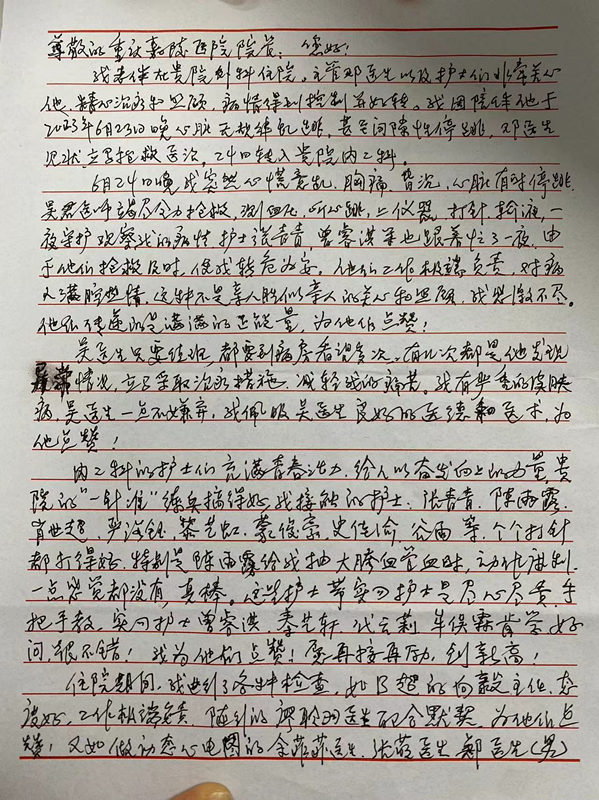 尊敬的重庆嘉陵医院院长：您好！
我老伴在贵院外科住院，主管邓医生以及护士们非常关心
他，精心治疗和照顾，病情得到控制并好转。我因陪伴他于
2023年6月23日晚心脏无规律乱跳，甚至间隙性停跳，邓医生
见状立马抢救医治，24日转入贵院内二科。
6月24日晚我突然心慌意乱，胸痛，昏沉，心脏有时停跳，
吴君医师竭尽全力抢救，测血压，听心跳，上仪器，打针，输液，一
夜守护观察我的病性，护士张青青，曾睿洪等也跟着忙了一夜，由
于他们抢救及时，使我转危为安，他们工作极端负责，对病
人满腔热情，这种不是亲人胜似亲人的关心和照顾，我感激不尽。
他们传递的是满满的正能量，为他们点赞！
吴医生只要值班，都要到病房看望多次，有几次都是他发现
异常情况，立马采取治疗措施，减轻我的痛苦。我有严重的皮肤
病，吴医生一点不嫌弃，我佩服吴医生良好的医德和医术，为
他点赞！
内二科的护士们充满青春活力，给人以奋发向上的力量，贵
院的“一针准”练兵搞得好，我接触的护士：张青青，陈雨露，
肖世超，严 钰，黎艺虹，蒙俊豪，史佳 ，谷雨等，个个打针
都打得好，特别是陈雨露给我抽大胯血管血时，动作麻利，
一点感觉都没有，真棒。这些护士带实习护士是尽心尽责，手
把手教，实习护士曾睿洪，秦艺轩，代云莉，牟俣霖肯学好
问，很不错！我为他们点赞！愿再接再励，创新高！
住院期间，我进行了各种检查，如B超的向毅主任，态
度好，工作极端负责，随行的廖聆羽医生配合默契，为他们点
赞！又如做动态心电图的余菲菲医生，张萌医生，郑医生（男）